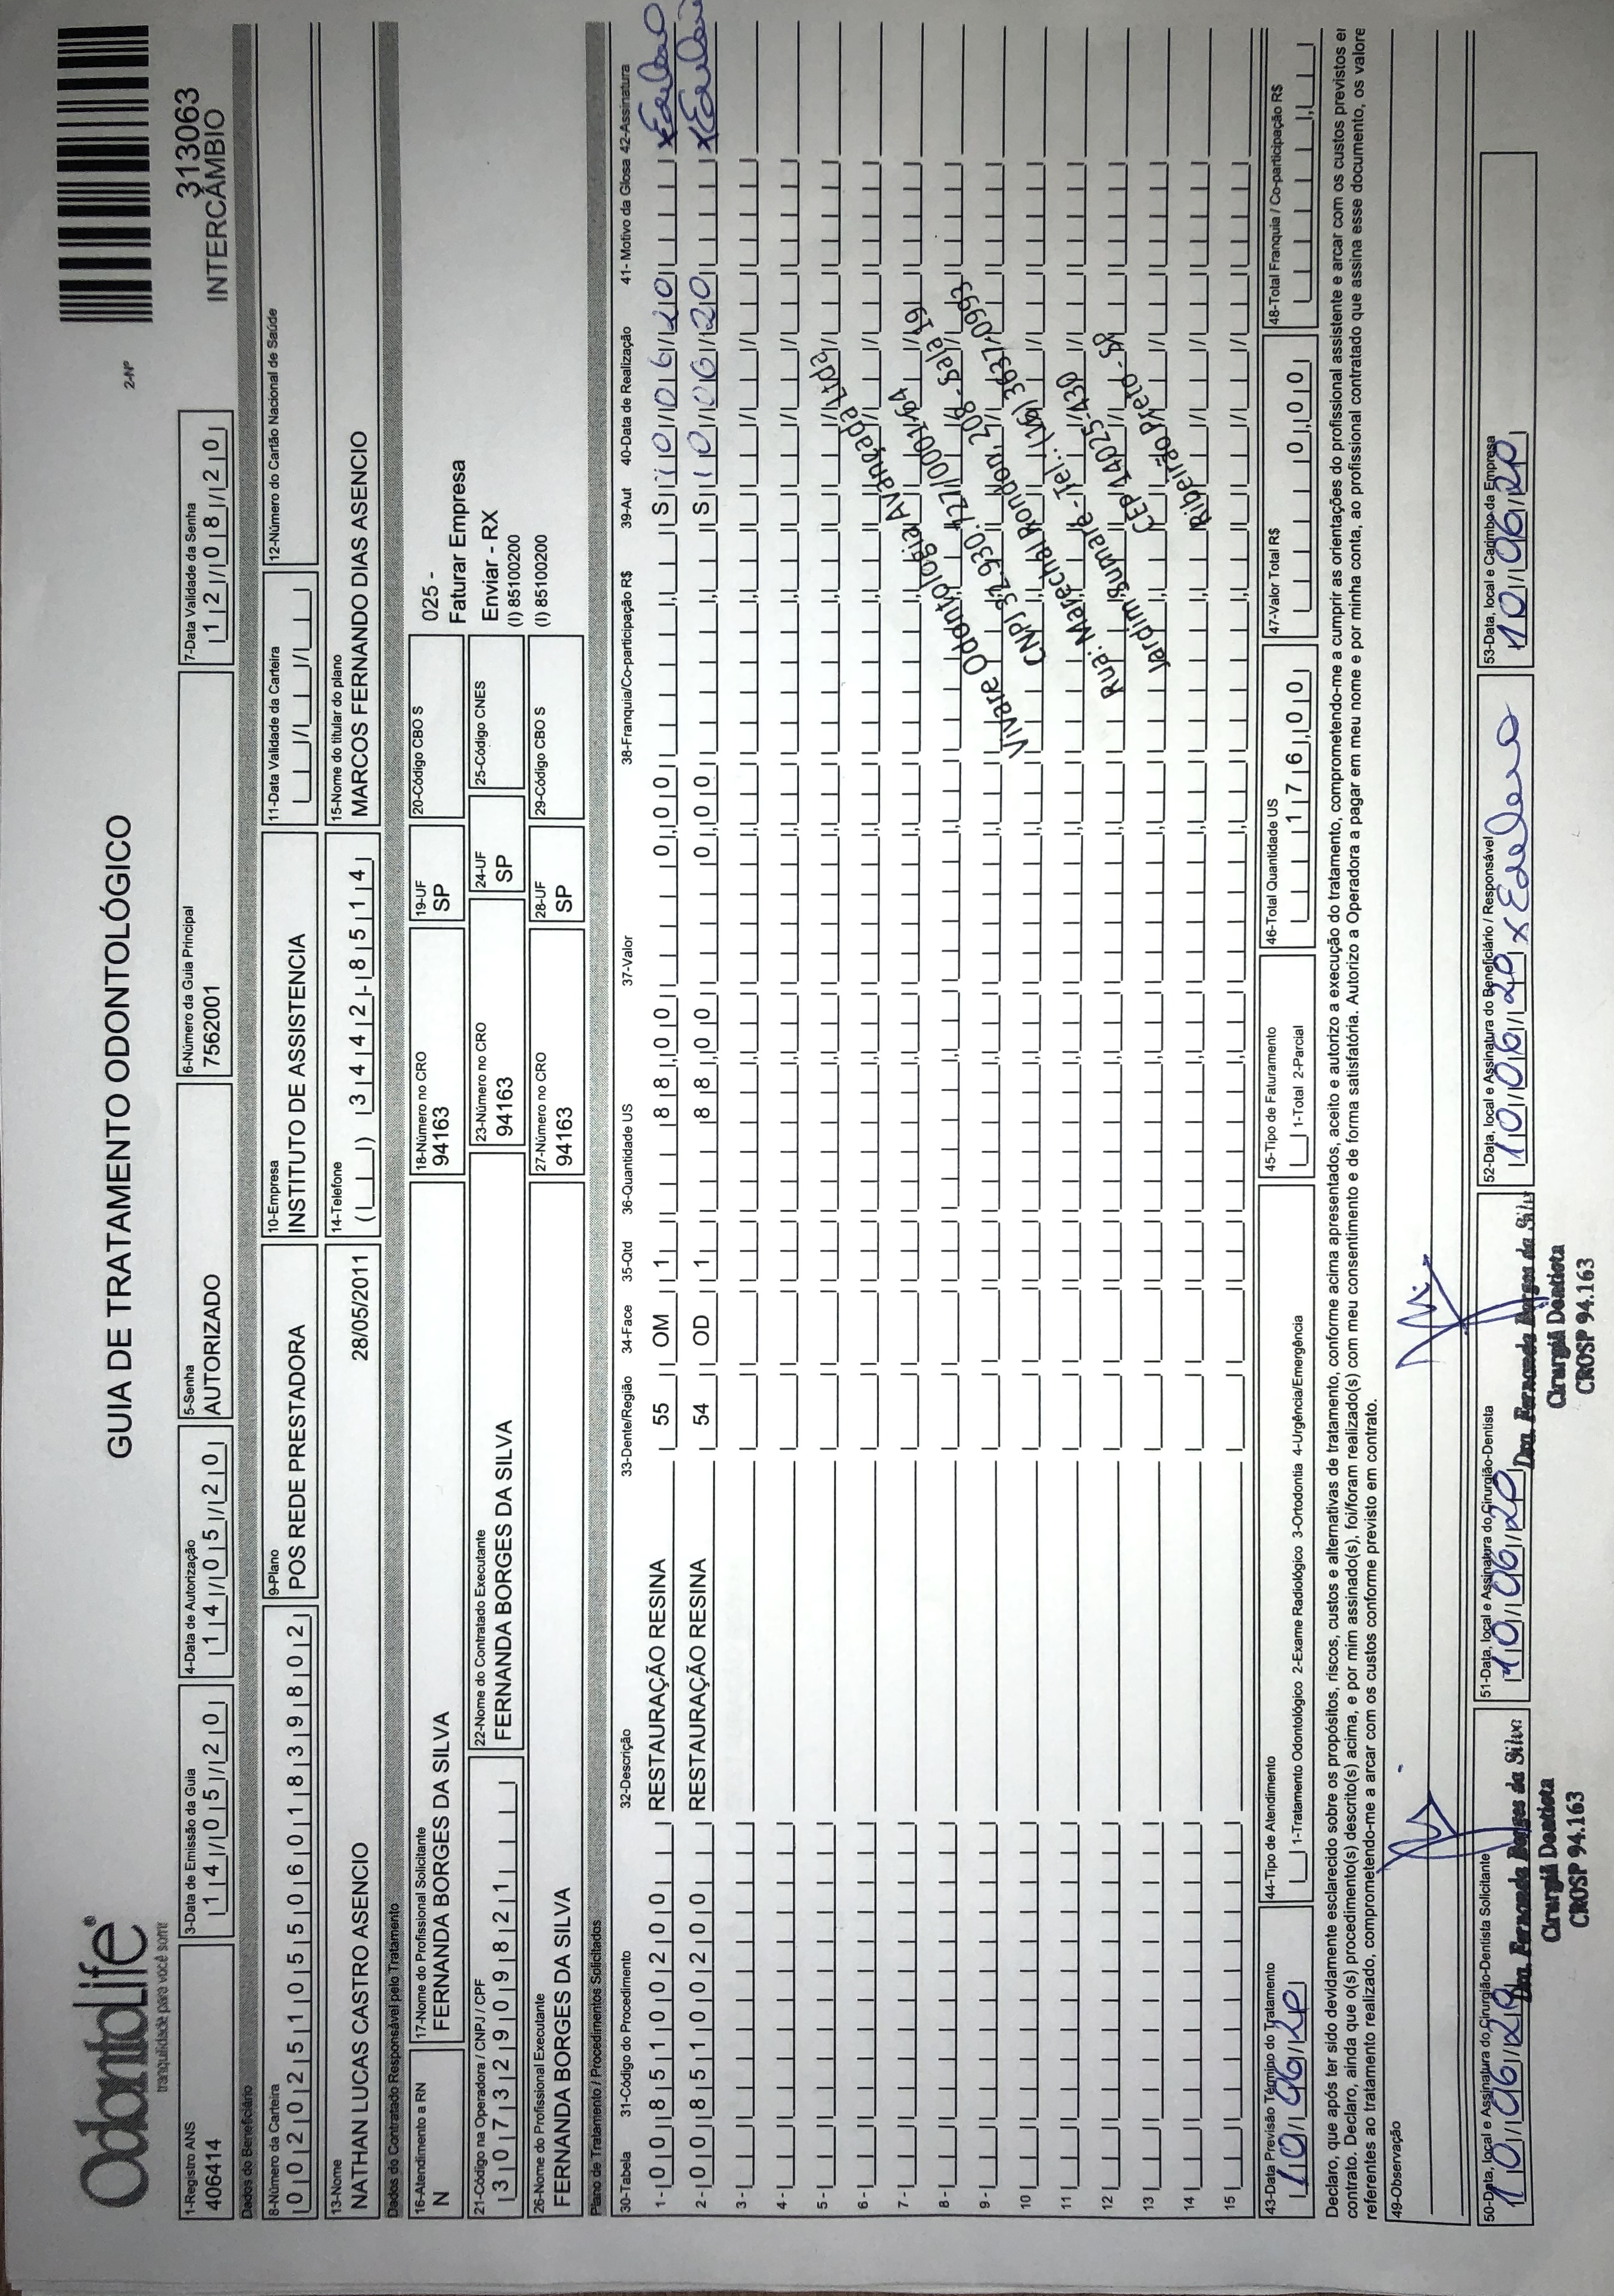 OdontoLife®
tranquilidade para você sorrir
GUIA DE TRATAMENTO ODONTOLÓGICO
2-Nº
313063
INTERCÂMBIO
1-Registro ANS
406414
3-Data de Emissão da Guia
14/05/20
4-Data de Autorização
14/05/20
5-Senha
AUTORIZADO
6-Número da Guia Principal
7562001
7-Data Validade da Senha
12/08/20
Dados do Beneficiário
8-Número da Carteira
00202510550601839802
9-Plano
POS REDE PRESTADORA
10-Empresa
INSTITUTO DE ASSISTENCIA
11-Data Validade da Carteira
12-Número do Cartão Nacional de Saúde
13-Nome
NATHAN LUCAS CASTRO ASENCIO
28/05/2011
14-Telefone
( ) 3442-8514
15-Nome do titular do plano
MARCOS FERNANDO DIAS ASENCIO
Dados do Contratado Responsável pelo Tratamento
16-Atendimento a RN
N
17-Nome do Profissional Solicitante
FERNANDA BORGES DA SILVA
18-Número no CRO
94163
19-UF
SP
20-Código CBO S
025 -
Faturar Empresa
21-Código na Operadora / CNPJ / CPF
30732909821
22-Nome do Contratado Executante
FERNANDA BORGES DA SILVA
23-Número no CRO
94163
24-UF
SP
25-Código CNES
Enviar - RX
(I) 85100200
(I) 85100200
26-Nome do Profissional Executante
FERNANDA BORGES DA SILVA
27-Número no CRO
94163
28-UF
SP
29-Código CBO S
Plano de Tratamento / Procedimentos Solicitados
30-Tabela 31-Código do Procedimento 32-Descrição 33-Dente/Região 34-Face 35-Qtd 36-Quantidade US 37-Valor 38-Franquia/Co-participação R$ 39-Aut 40-Data de Realização 41- Motivo da Glosa 42-Assinatura
1 - 00 85100200 RESTAURAÇÃO RESINA 55 OM 1 88,00 0,00 S 10/06/20
2 - 00 85100200 RESTAURAÇÃO RESINA 54 OD 1 88,00 0,00 S 10/06/20
3 -
4 -
5 -
6 -
7 -
8 -
9 -
10
11
12
13
14
15
Vivare Odontologia Avançada Ltda
CNPJ 32.930.127/0001-04
Rua: Marechal Rondon, 208 - Sala 19
Jardim Sumaré - Tel.: (16) 3637-0993
CEP 14025-430
Ribeirão Preto - SP
43-Data Previsão Término do Tratamento
10/06/20
44-Tipo de Atendimento
1-Tratamento Odontológico 2-Exame Radiológico 3-Ortodontia 4-Urgência/Emergência
45-Tipo de Faturamento
1-Total 2-Parcial
46-Total Quantidade US
176,00
47-Valor Total R$
0,00
48-Total Franquia / Co-participação R$
Declaro, que após ter sido devidamente esclarecido sobre os propósitos, riscos, custos e alternativas de tratamento, conforme acima apresentados, aceito e autorizo a execução do tratamento, comprometendo-me a cumprir as orientações do profissional assistente e arcar com os custos previstos em
contrato. Declaro, ainda que o(s) procedimento(s) descrito(s) acima, e por mim assinado(s), foi/foram realizado(s) com meu consentimento e de forma satisfatória. Autorizo a Operadora a pagar em meu nome e por minha conta, ao profissional contratado que assina esse documento, os valore
referentes ao tratamento realizado, comprometendo-me a arcar com os custos conforme previsto em contrato.
49-Observação
50-Data, local e Assinatura do Cirurgião-Dentista Solicitante
10/06/20
51-Data, local e Assinatura do Cirurgião-Dentista
10/06/20
52-Data, local e Assinatura do Beneficiário / Responsável
10/06/20
53-Data, local e Carimbo da Empresa
10/06/20
Dra. Fernanda Borges da Silva
Cirurgiã Dentista
CROSP 94.163
Dra. Fernanda Borges da Silv
Cirurgiã Dentista
CROSP 94.163